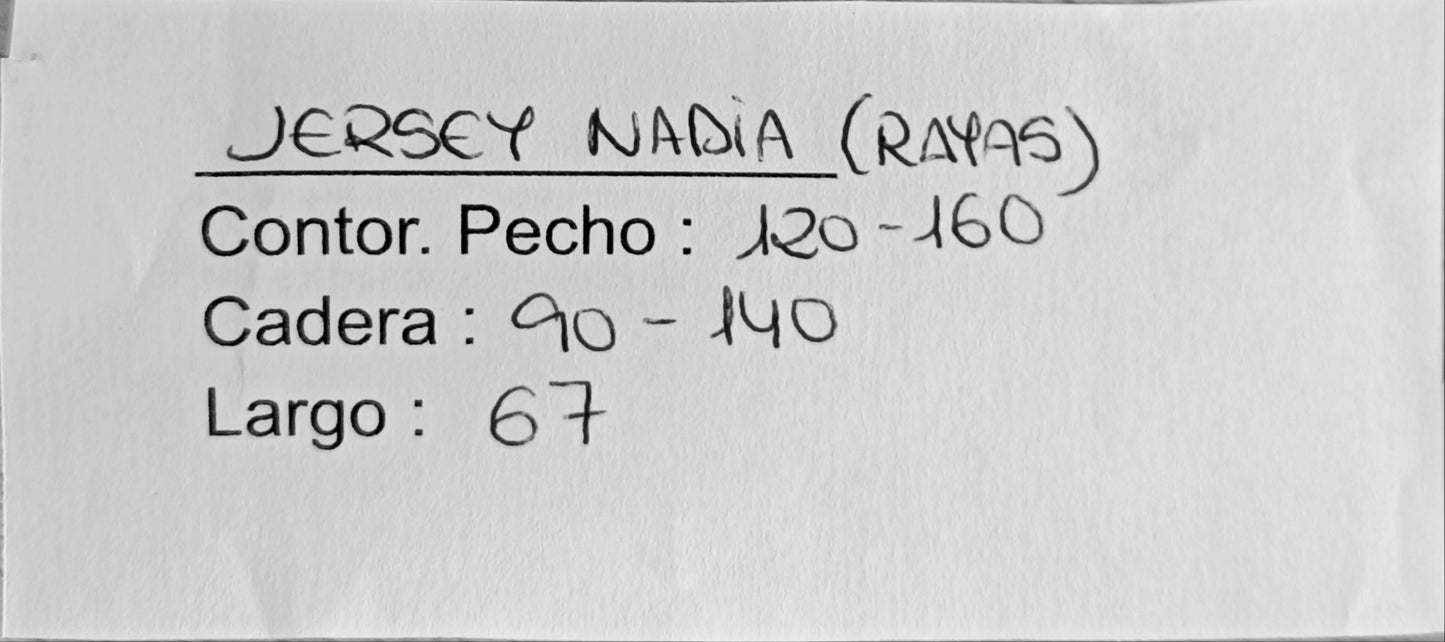 JERSEY NADIA (RAYAS)
Contor. Pecho : 120-160
Cadera : 90 - 140
Largo : 67